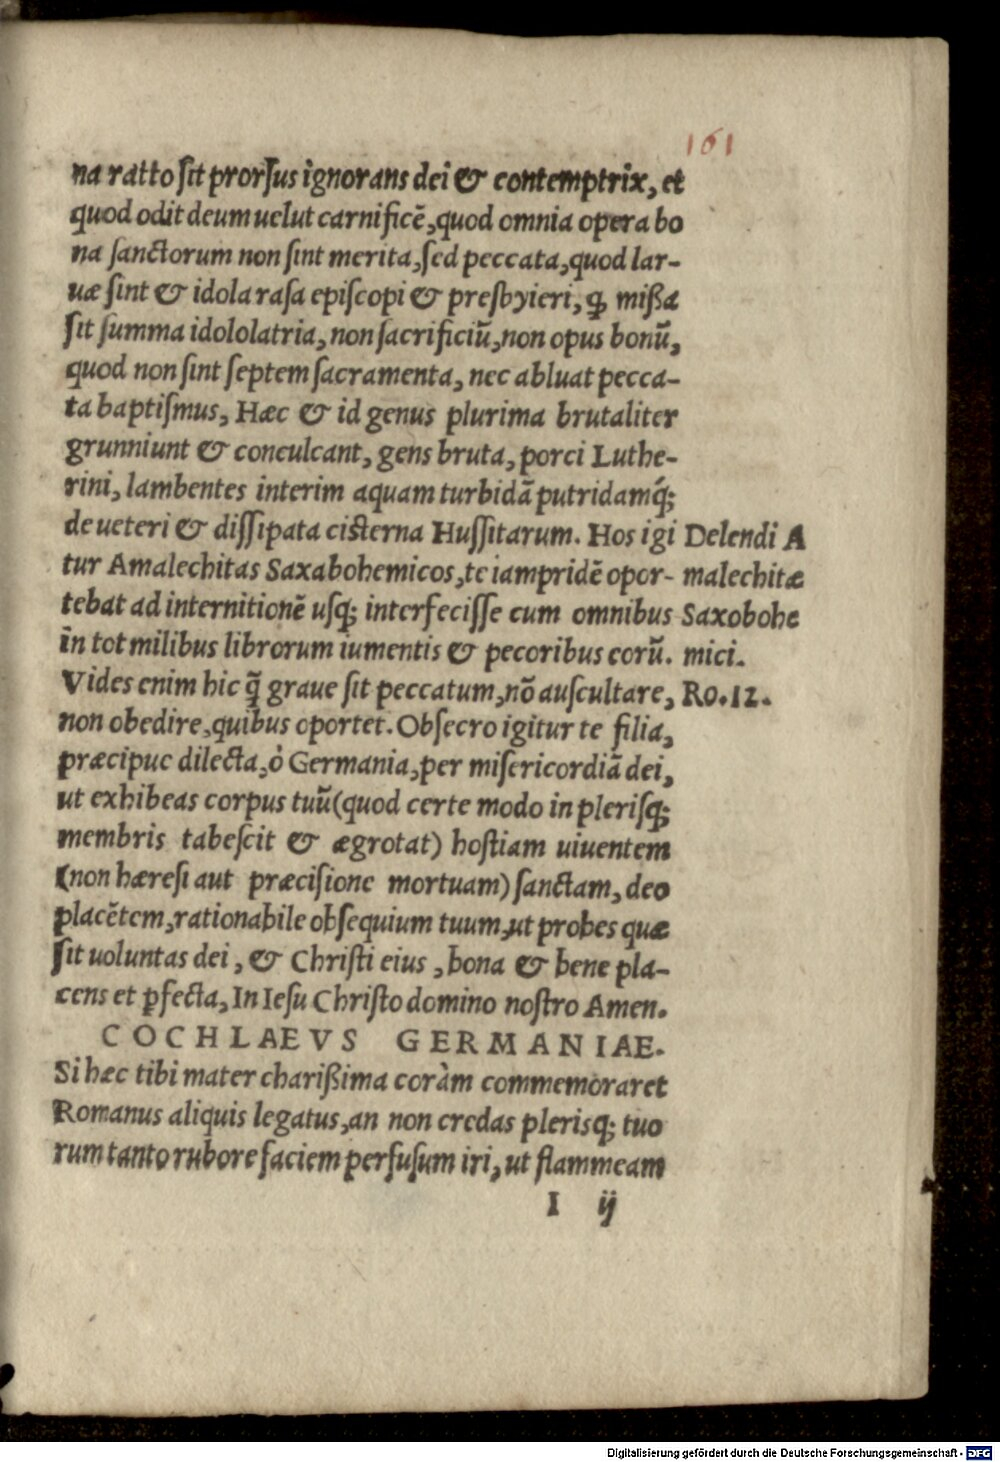 161
na ratto ſit prorſus ignorans dei & contemptrix, et
quod odit deum uelut carnificē, quod omnia opera bo
na ſanctorum non ſint merita, ſed peccata, quod lar-
uæ ſint & idola raſa epiſcopi & presbyieri, ꝙ mißa
ſit ſumma idololatria, non ſacrificiū, non opus bonū,
quod non ſint ſeptem ſacramenta, nec abluat pecca-
ta baptiſmus, Hæc & id genus plurima brutaliter
grunniunt & conculcant, gens bruta, porci Luthe-
rini, lambentes interim aquam turbidā putridamq́;
de ueteri & diſſipata ciſterna Huſſitarum. Hos igi
tur Amalechitas Saxabohemicos, te iampridē opor-
tebat ad internitionē uſq; interfeciſſe cum omnibus
in tot milibus librorum iumentis & pecoribus eorū.
Delendi A
malechitæ
Saxobohe
mici.
Vides enim hic q̄ graue ſit peccatum, nō auſcultare,
Ro.12.
non obedire, quibus oportet. Obſecro igitur te filia,
præcipue dilecta, ò Germania, per miſericordiā dei,
ut exhibeas corpus tuū (quod certe modo in pleriſq;
membris tabeſcit & ægrotat) hoſtiam uiuentem
(non hæreſi aut præciſione mortuam) ſanctam, deo
placētem, rationabile obſequium tuum, ut probes quæ
ſit uoluntas dei, & Chriſti eius, bona & bene pla-
cens et ꝑfecta, In Ieſu Chriſto domino noſtro Amen.
COCHLAEVS GERMANIAE.
Si hæc tibi mater charißima coràm commemoraret
Romanus aliquis legatus, an non credas plerisq; tuo
rum tanto rubore faciem perfuſum iri, ut flammeam
I ij
Digitalisierung gefördert durch die Deutsche Forschungsgemeinschaft - DFG